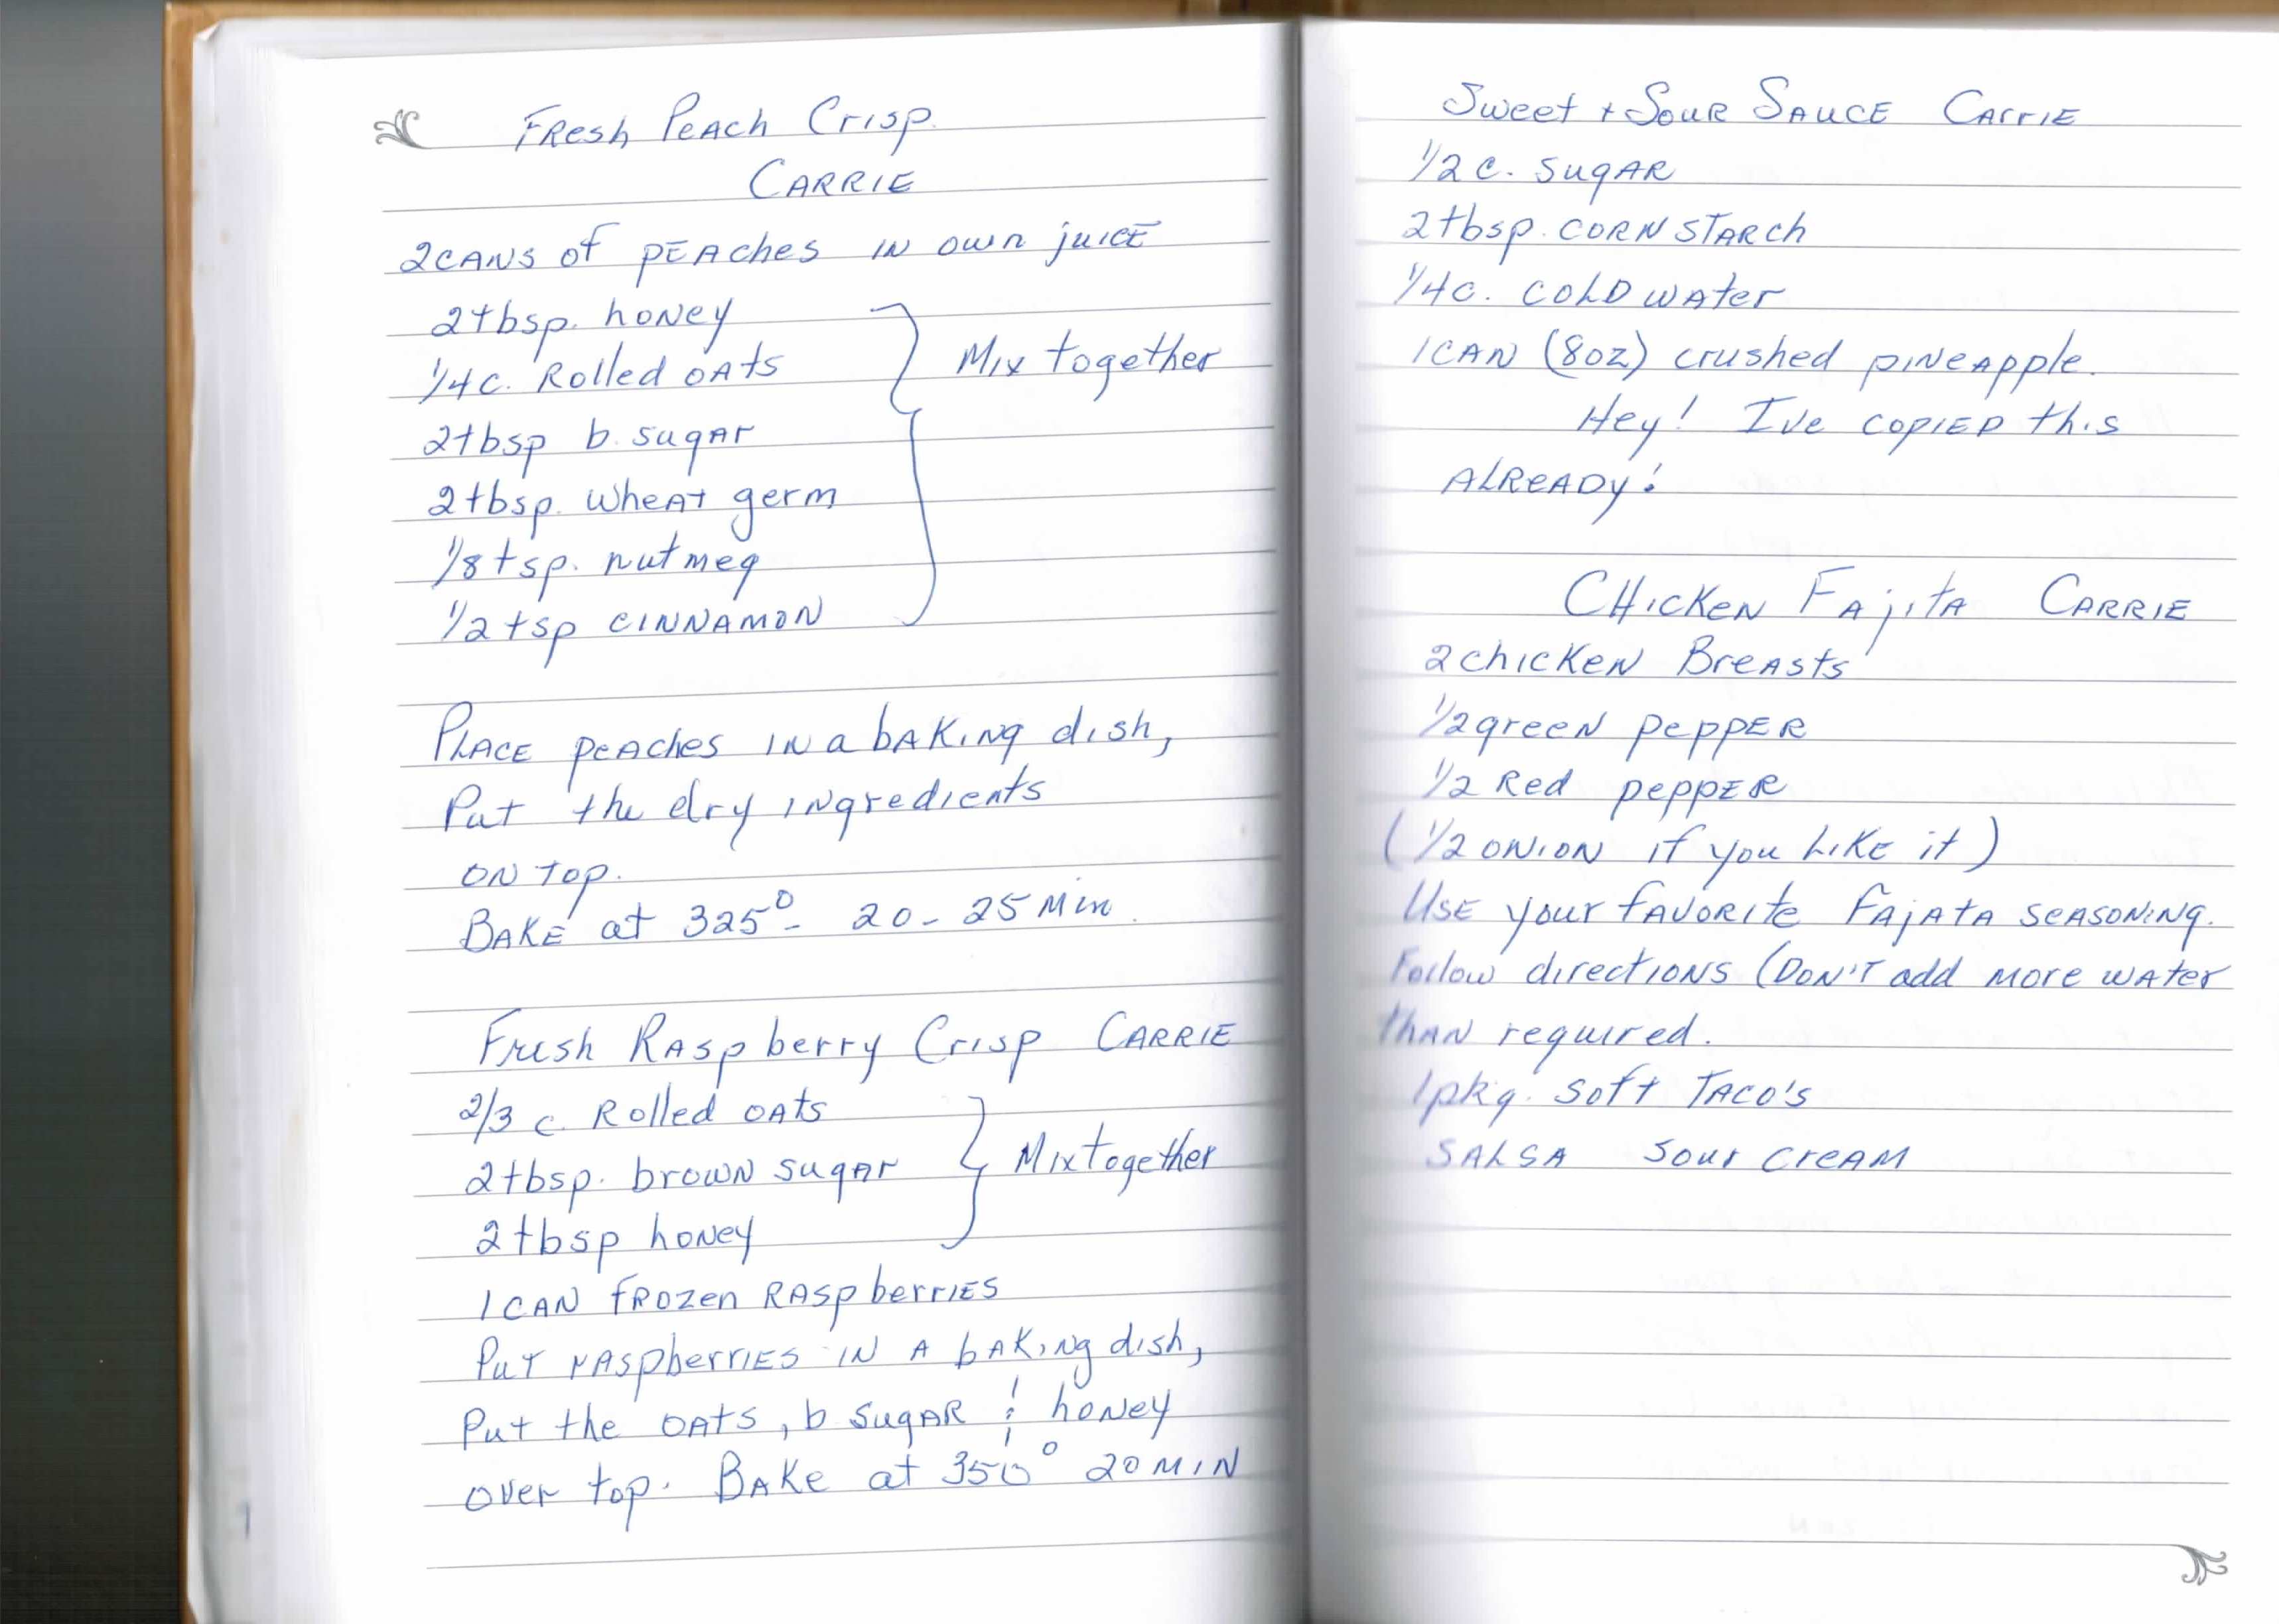 Fresh Peach Crisp.
Carrie
2 cans of peaches in own juice
2 tbsp. honey
1/4 c. Rolled oats
Mix together
2 tbsp b. sugar
2 tbsp. wheat germ
1/8 tsp. nutmeg
1/2 tsp cinnamon
Place peaches in a baking dish,
Put the dry ingredients
on top.
Bake at 325° - 20 - 25 min.
Fresh Raspberry Crisp Carrie
2/3 c. Rolled oats
2 tbsp. brown sugar
Mix together
2 tbsp honey
1 can frozen raspberries
Put raspberries in a baking dish,
Put the oats, b sugar & honey
over top. Bake at 350° 20 min
Sweet + Sour Sauce Carrie
1/2 c. sugar
2 tbsp. corn starch
1/4 c. cold water
1 can (8oz) crushed pineapple.
Hey! I've copied this
already!
Chicken Fajita Carrie
2 chicken Breasts
1/2 green pepper
1/2 Red pepper
(1/2 onion if you like it)
Use your favorite Fajata seasoning.
Follow directions (Don't add more water
than required.
1 pkg. soft Taco's
Salsa Sour cream